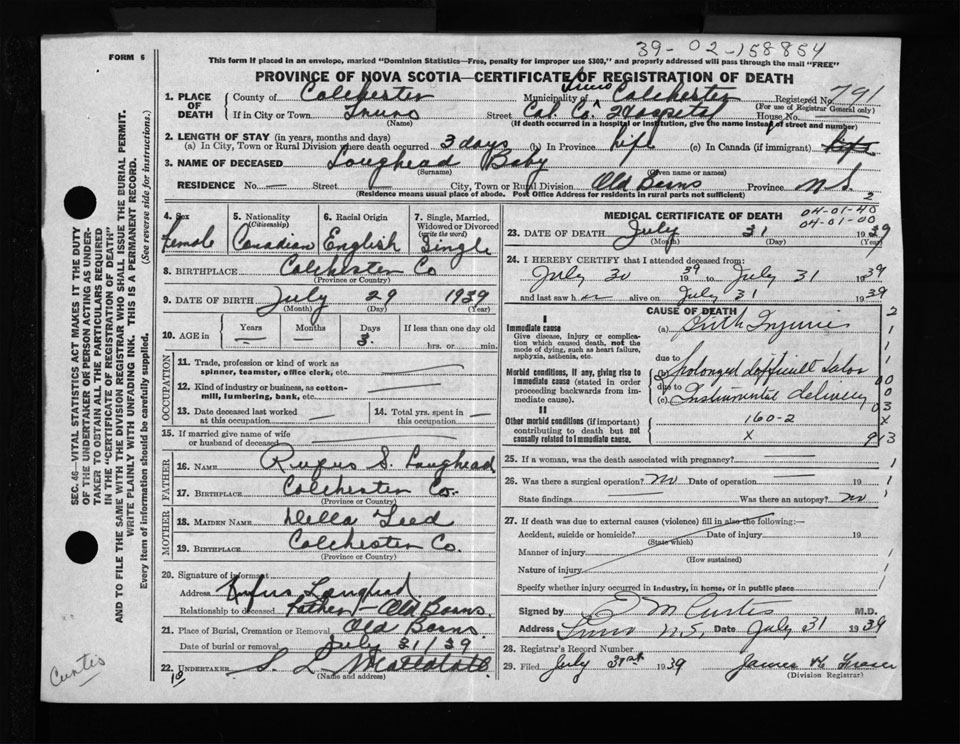 39-02-158854
FORM 6
This form if placed in an envelope, marked "Dominion Statistics—Free, penalty for improper use $300," and properly addressed will pass through the mail "FREE"
PROVINCE OF NOVA SCOTIA—CERTIFICATE OF REGISTRATION OF DEATH
1. PLACE OF DEATH
County of Colchester Municipality of Truro Colchester Registered No. 791
(For use of Registrar General only)
If in City or Town Truro Street Col. Co. Hospital House No.
(Name) (If death occurred in a hospital or institution, give the name instead of street and number)
2. LENGTH OF STAY (in years, months and days)
(a) In City, Town or Rural Division where death occurred 3 days (b) In Province Life (c) In Canada (if immigrant) Life
3. NAME OF DECEASED Loughead Baby
(Surname) (Given name or names)
RESIDENCE No. — Street — City, Town or Rural Division Old Barns Province N.S.
(Residence means usual place of abode. Post Office Address for residents in rural parts not sufficient)
2
4. Sex Female
5. Nationality (Citizenship) Canadian
6. Racial Origin English
7. Single, Married, Widowed or Divorced (write the word) Single
8. BIRTHPLACE Colchester Co
(Province or Country)
9. DATE OF BIRTH July 29 1939
(Month) (Day) (Year)
10. AGE in Years — Months — Days 3 If less than one day old hrs. or min.
OCCUPATION
11. Trade, profession or kind of work as spinner, teamster, office clerk, etc. —
12. Kind of industry or business, as cotton-mill, lumbering, bank, etc. —
13. Date deceased last worked at this occupation —
14. Total yrs. spent in this occupation —
15. If married give name of wife or husband of deceased —
FATHER
16. NAME Rufus S. Loughead
17. BIRTHPLACE Colchester Co.
(Province or Country)
MOTHER
18. MAIDEN NAME Della Teed
19. BIRTHPLACE Colchester Co.
(Province or Country)
20. Signature of informant
Address Rufus Loughead
Relationship to deceased Father — Old Barns.
21. Place of Burial, Cremation or Removal Old Barns.
Date of burial or removal July 31/39
22. UNDERTAKER S. L.
(Name and address)
MEDICAL CERTIFICATE OF DEATH
04-01-40
04-01-00
23. DATE OF DEATH July 31 1939
(Month) (Day) (Year)
24. I HEREBY CERTIFY that I attended deceased from:
July 30 1939 to July 31 1939
and last saw her alive on July 31 1939
CAUSE OF DEATH
I
Immediate cause
Give disease, injury or complication which caused death, not the mode of dying, such as heart failure, asphyxia, asthenia, etc.
(a) Birth Injuries
due to
Morbid conditions, if any, giving rise to immediate cause (stated in order proceeding backwards from immediate cause).
(b) Prolonged difficult labor
due to
(c) Instrumental delivery
II
Other morbid conditions (if important) contributing to death but not causally related to immediate cause.
160-2
X
25. If a woman, was the death associated with pregnancy? —
26. Was there a surgical operation? No Date of operation — 19
State findings — Was there an autopsy? no
27. If death was due to external causes (violence) fill in also the following:—
Accident, suicide or homicide? Date of injury 19
(State which)
Manner of injury
(How sustained)
Nature of injury
Specify whether injury occurred in industry, in home, or in public place
Signed by E M Curtis M.D.
Address Truro N.S. Date July 31 1939
28. Registrar's Record Number
29. Filed July 31st 1939 James K. Fraser
(Division Registrar)
SEC. 46—VITAL STATISTICS ACT MAKES IT THE DUTY
OF THE UNDERTAKER OR PERSON ACTING AS UNDER-
TAKER TO OBTAIN ALL THE PARTICULARS REQUIRED
IN THE "CERTIFICATE OF REGISTRATION OF DEATH"
AND TO FILE THE SAME WITH THE DIVISION REGISTRAR WHO SHALL ISSUE THE BURIAL PERMIT.
WRITE PLAINLY WITH UNFADING INK. THIS IS A PERMANENT RECORD.
Every item of information should be carefully supplied. (See reverse side for instructions.)
Curtis